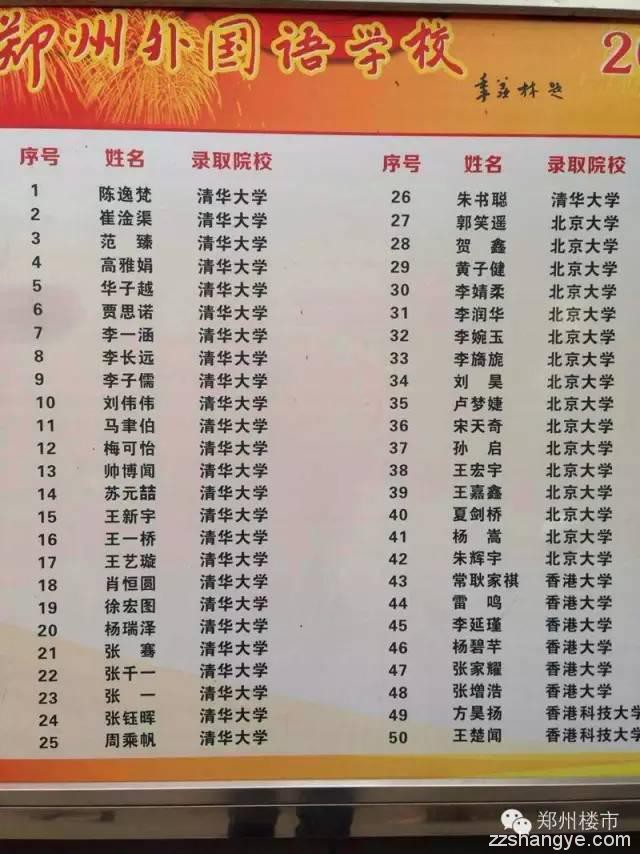 郑州外国语学校
20
季羡林题
序号 姓名 录取院校
1 陈逸梵 清华大学
2 崔淦渠 清华大学
3 范 臻 清华大学
4 高雅娟 清华大学
5 华子越 清华大学
6 贾思诺 清华大学
7 李一涵 清华大学
8 李长远 清华大学
9 李子儒 清华大学
10 刘伟伟 清华大学
11 马聿伯 清华大学
12 梅可怡 清华大学
13 帅博闻 清华大学
14 苏元喆 清华大学
15 王新宇 清华大学
16 王一桥 清华大学
17 王艺璇 清华大学
18 肖恒圆 清华大学
19 徐宏图 清华大学
20 杨瑞泽 清华大学
21 张 骞 清华大学
22 张千一 清华大学
23 张 一 清华大学
24 张钰晖 清华大学
25 周乘帆 清华大学
序号 姓名 录取院校
26 朱书聪 清华大学
27 郭笑遥 北京大学
28 贺 鑫 北京大学
29 黄子健 北京大学
30 李婧柔 北京大学
31 李润华 北京大学
32 李婉玉 北京大学
33 李旖旎 北京大学
34 刘 昊 北京大学
35 卢梦婕 北京大学
36 宋天奇 北京大学
37 孙 启 北京大学
38 王宏宇 北京大学
39 王嘉鑫 北京大学
40 夏剑桥 北京大学
41 杨 嵩 北京大学
42 朱辉宇 北京大学
43 常耿家祺 香港大学
44 雷 鸣 香港大学
45 李延瑾 香港大学
46 杨碧芊 香港大学
47 张家耀 香港大学
48 张增浩 香港大学
49 方昊扬 香港科技大学
50 王楚闻 香港科技大学
郑州楼市
zzshangye.com